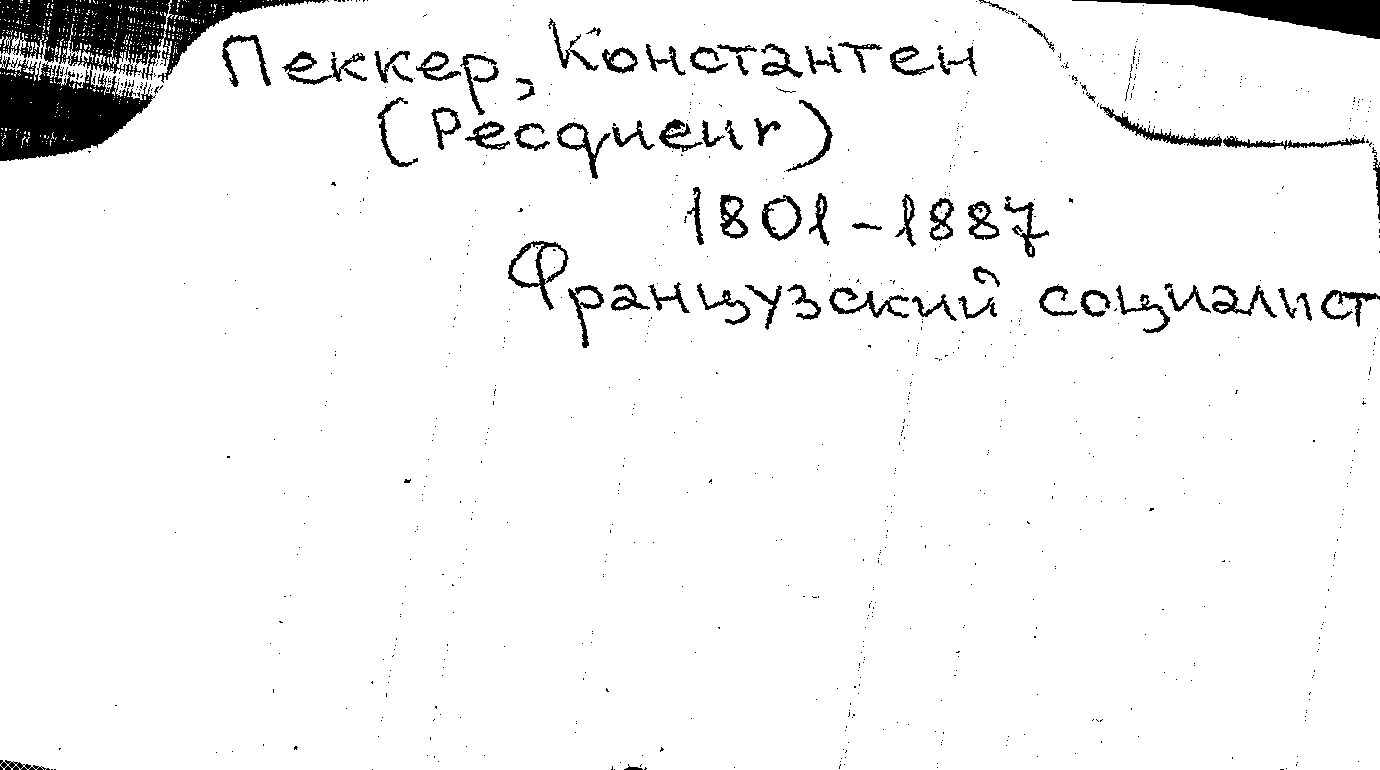 Пеккер, Константен
(Pecqueur)
1801-1887
Французский социалист